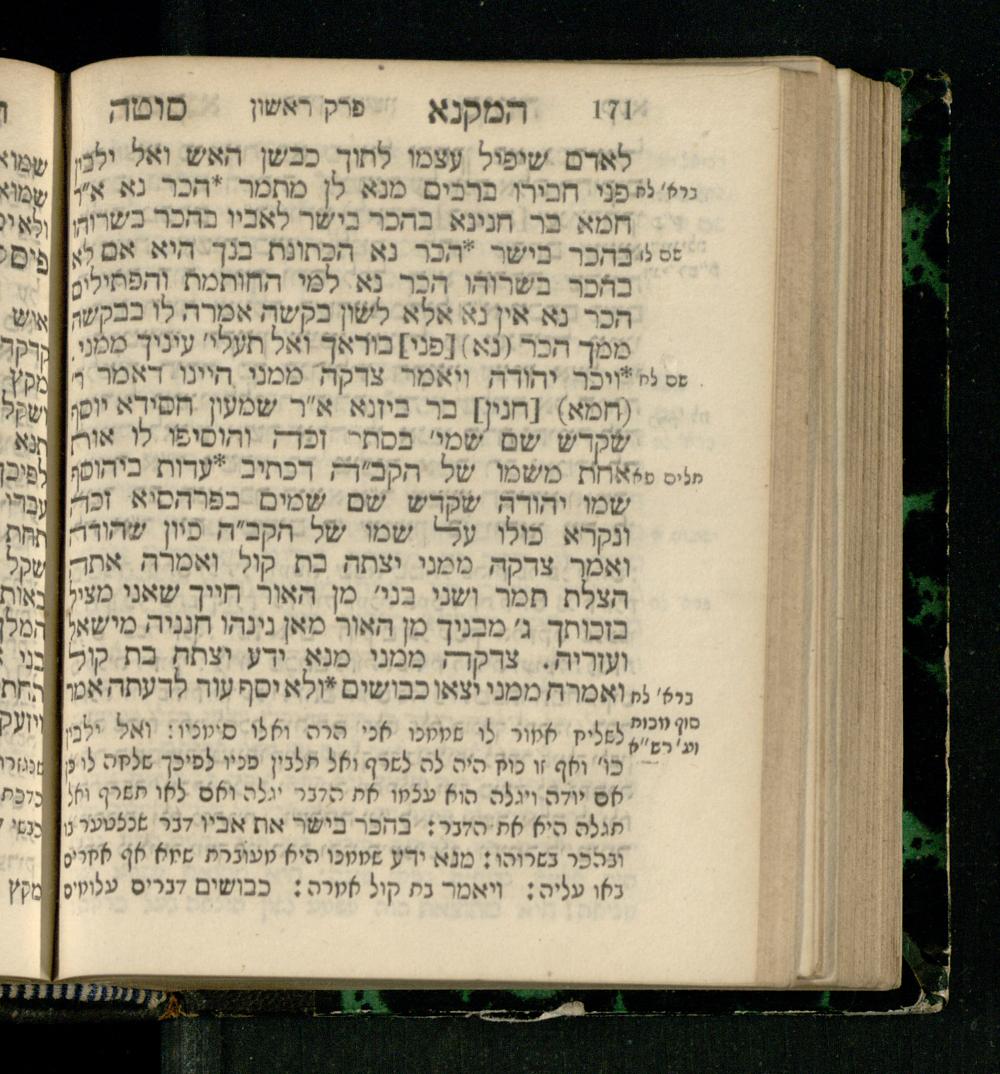 171 המקנא פרק ראשון סוטה
לאדם שיפיל עצמו לתוך כבשן האש ואל ילבין
ברא' לח פני חבירו ברבים מנא לן מתמר *הכר נא א"ר
חמא בר חנינא בהכר בישר לאביו בהכר בשרוהו
שם לז בהכר בישר *הכר נא הכתונת בנך היא אם לא
בהכר בשרוהו הכר נא למי החותמת והפתילים
הכר נא אין נא אלא לשון בקשה אמרה לו בבקשה
ממך הכר (נא) [פני] בוראך ואל תעלי' עיניך ממני.
שם לח *ויכר יהודה ויאמר צדקה ממני היינו דאמר ר'
(חמא) [חנין] בר ביזנא א"ר שמעון חסידא יוסף
שקדש שם שמי' בסתר זכה והוסיפו לו אות
תלים פא אחת משמו של הקב"ה דכתיב *עדות ביהוסף
שמו יהודה שקדש שם שמים בפרהסיא זכה
ונקרא כולו על שמו של הקב"ה כיון שהודה
ואמר צדקה ממני יצתה בת קול ואמרה אתה
הצלת תמר ושני בני' מן האור חייך שאני מציל
בזכותך ג' מבניך מן האור מאן נינהו חנניה מישאל
ועזריה. צדקה ממני מנא ידע יצתה בת קול
ברא' לח ואמרה ממני יצאו כבושים *ולא יסף עוד לדעתה אמר
סוף מכות
וע' רש"א
לשליח אמור לו שממנו אני הרה ואלו סימניו: ואל ילבין
כו' ואף זו כמה היה לה לשרף ואל תלבין פניו לפיכך שלחה לו כן
אם יודה ויגלה הוא עצמו את הדבר יגלה ואם לאו תשרף ואל
תגלה היא את הדבר: בהכר בישר את אביו דבר שנצטער בו
ובהכר בשרוהו: מנא ידע שממנו היא מעוברת שמא אף אחרים
באו עליה: ויאמר בת קול אמרה: כבושים דברים עלומים